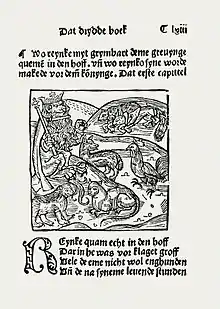 Dat drydde boek C lxiii
¶ Wo reynke myt grymbart deme greuynge
quemē in den hoff. vñ wo reynke syne worde
makede vor dem̄ könynge. Dat erste capittel
Reynke quam echt in den hoff
Dar in he was vor klaget groff
Vele de eme nicht wol en ghunden
Vñ de na syneme leuende stunden